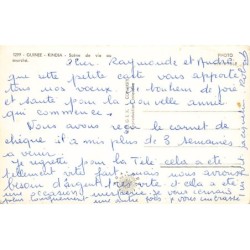 1299 - GUINEE - KINDIA - Scène de vie au marché
PHOTO
Cher Raymonde et André
que cette petite carte vous apporte
tous nos vœux de bonheur de joie
et santé pour la nouvelle année
qui commence.
Vous avons reçu le carnet de
chèque il a mis plus de 3 semaines
a venir.
Je regrette pour la Télé cela a été
tellement vite fait mais nous avions
besoin d'argent très vite et cela a été
une occasion, je vous connais
pour